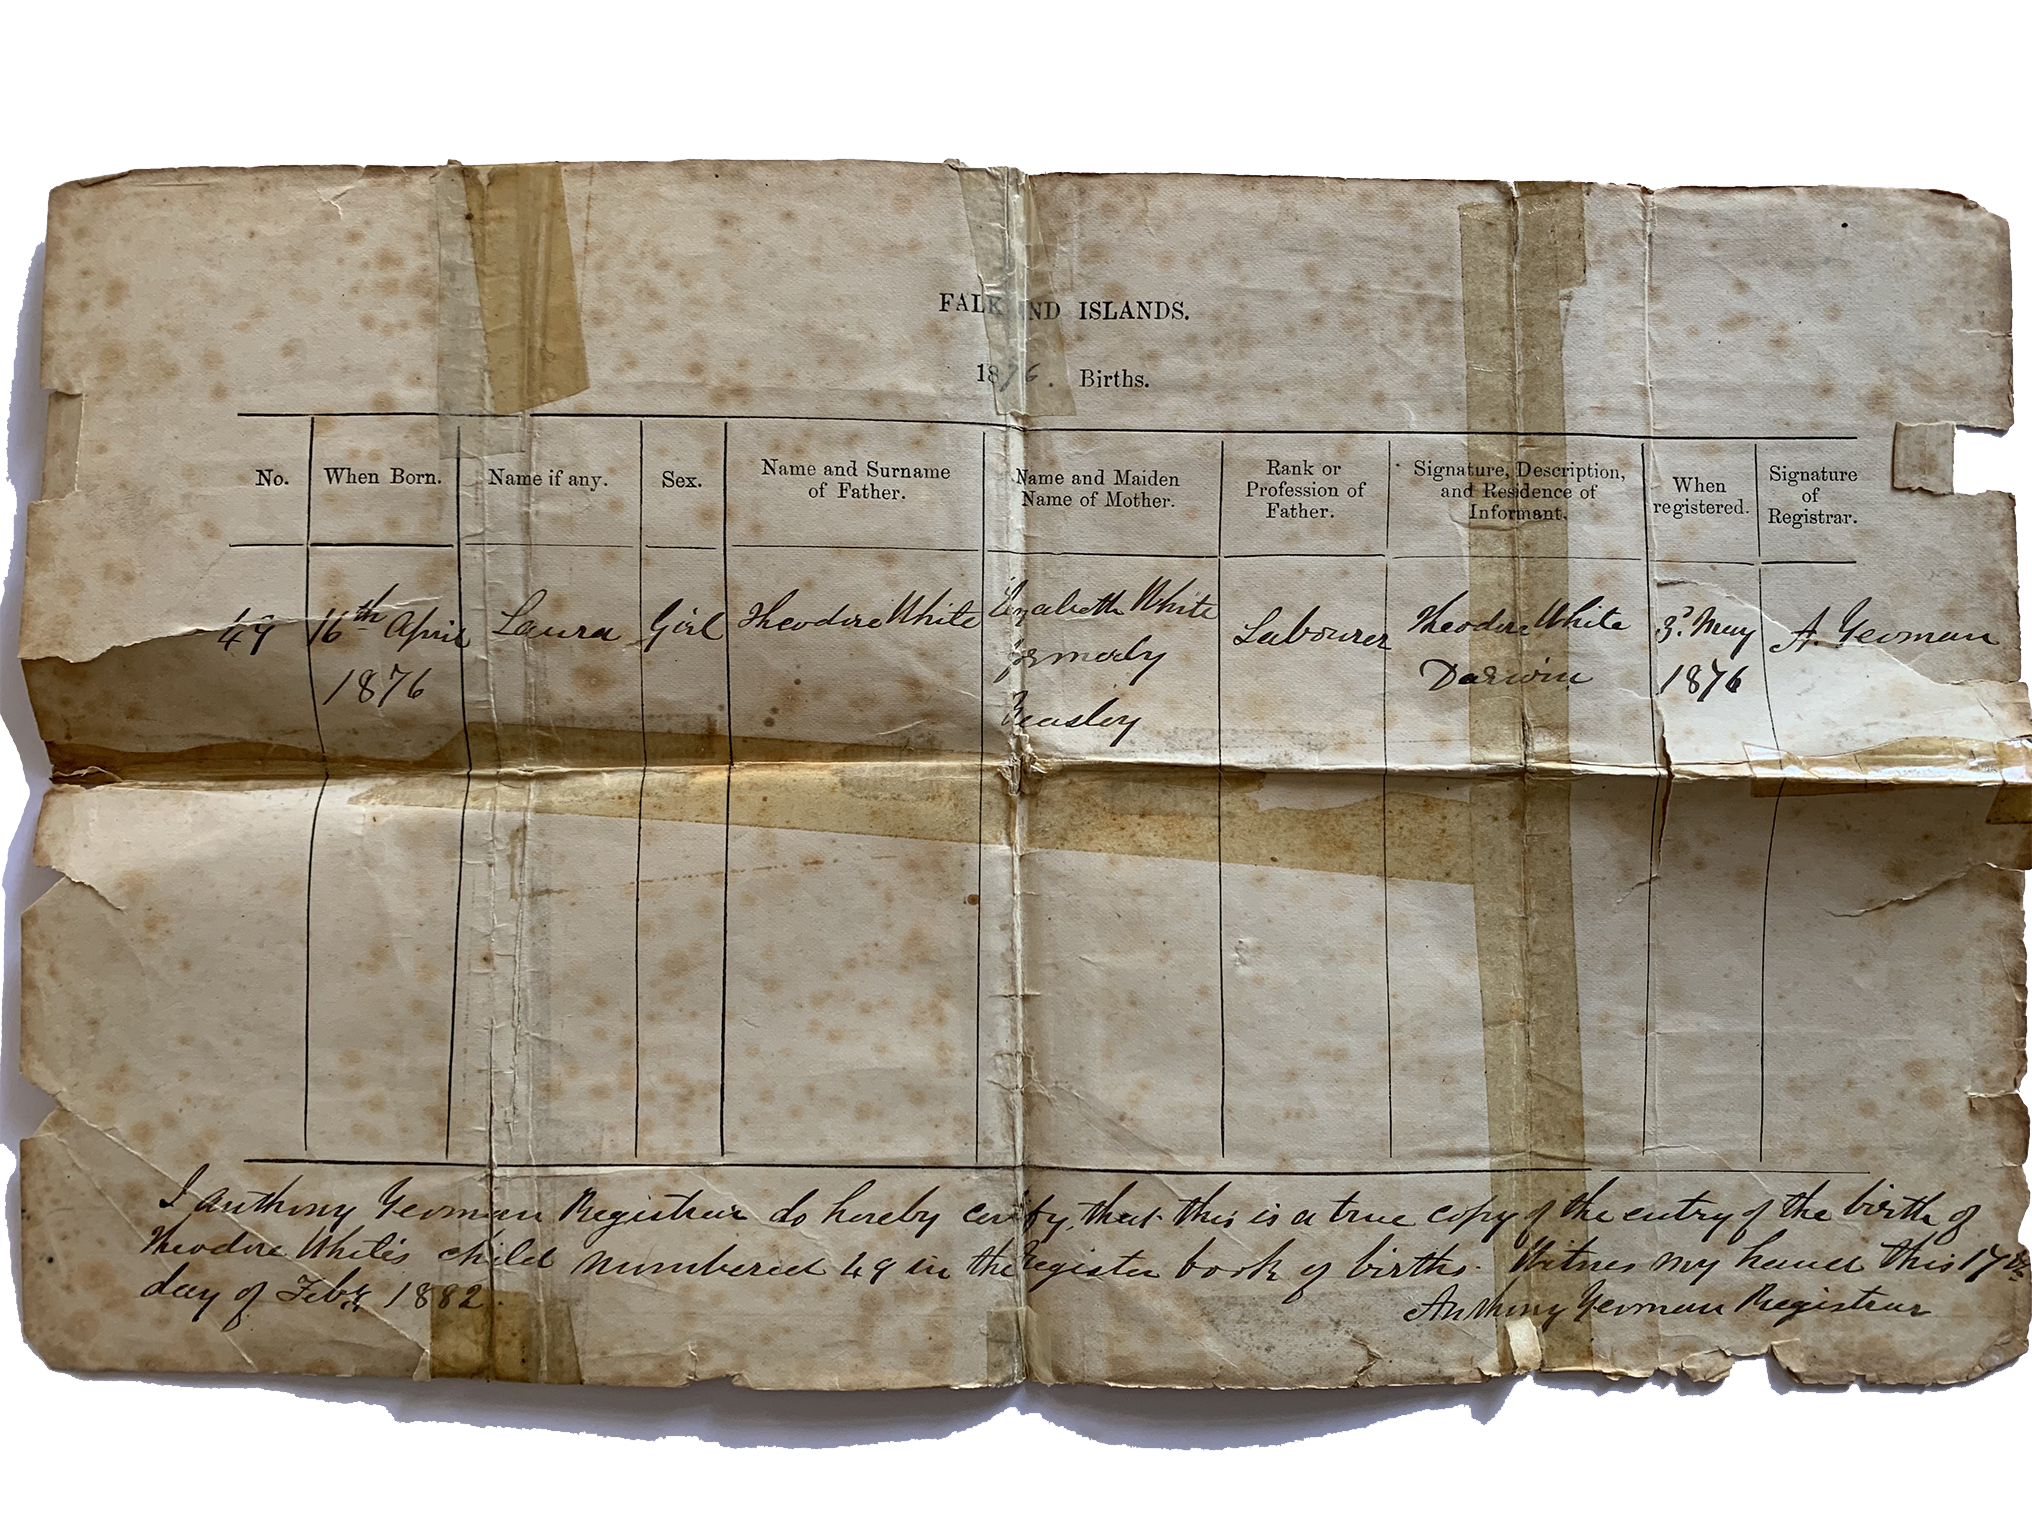 FALK ND ISLANDS.
1876. Births.
No.
When Born.
Name if any.
Sex.
Name and Surname
of Father.
Name and Maiden
Name of Mother.
Rank or
Profession of
Father.
Signature, Description,
and Residence of
Informant.
When
registered.
Signature
of
Registrar.
49
16th April
1876
Laura
Girl
Theodore White
Elizabeth White
formerly
Beasley
Labourer
Theodore White
Darwin
3d. May
1876
A. Yeoman
I Anthony Yeoman Registrar do hereby certify, that this is a true copy of the entry of the birth of
Theodore White's child numbered 49 in the Register book of births. Witness my hand this 17th
day of Feby 1882.
Anthony Yeoman Registrar